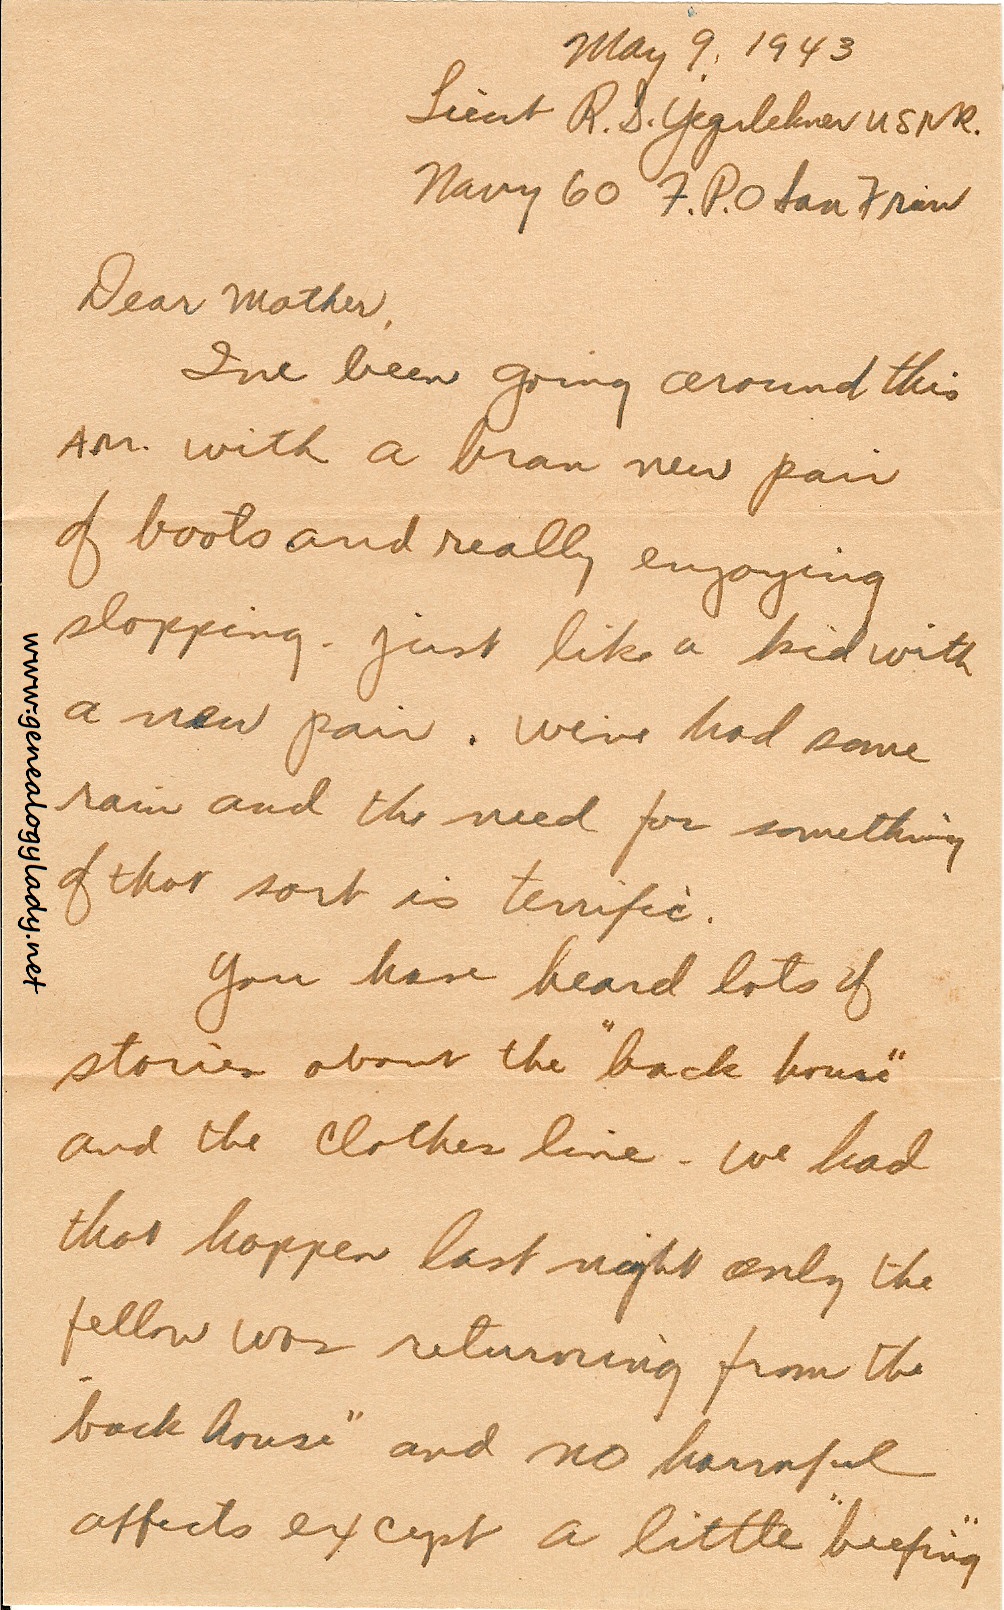 May 9, 1943
Lieut R. S. Yegerlehner USNR.
Navy 60 F.P.O San Fran
Dear Mother,
I've been going around this
AM. with a bran new pair
of boots and really enjoying
slopping - just like a kid with
a new pair. We've had some
rain and the need for something
of that sort is terrific.
You have heard lots of
stories about the "back house"
and the clothes line - we had
that happen last night only the
fellow was returning from the
"back house" and no harmful
affects except a little "beefing"
www.genealogylady.net